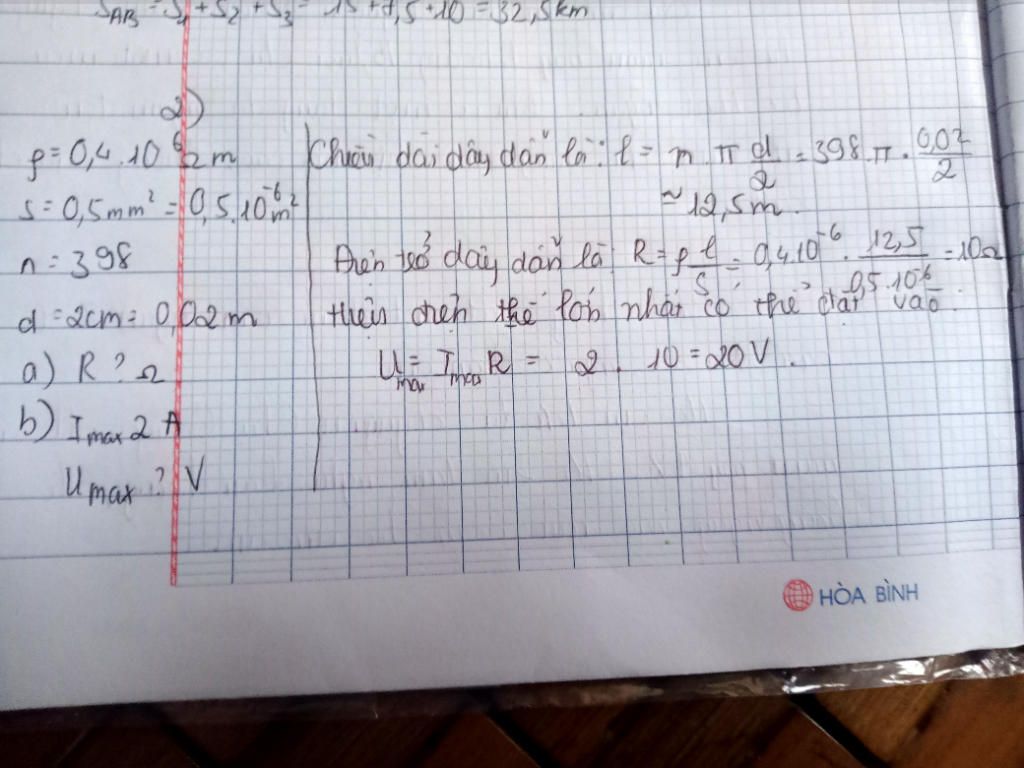 S_AB = S_1 + S_2 + S_3 = 15 + 7,5 + 10 = 32,5km
2)
ρ = 0,4.10^-6 Ω m
s = 0,5mm² = 0,5.10^-6 m²
n = 398
d = 2cm = 0,02 m
a) R ? Ω
b) I_max 2 A
U_max ? V
Chiều dài dây dẫn là: l = n . π d/2 = 398.π . 0,02/2
≈ 12,5m.
Điện trở dây dẫn là R = ρ l/S = 0,4 10^-6 . 12,5/0,5.10^-6 = 10Ω
Hiệu điện thế lớn nhất có thể đặt vào.
U_max = I_max R = 2 . 10 = 20 V.
HÒA BÌNH